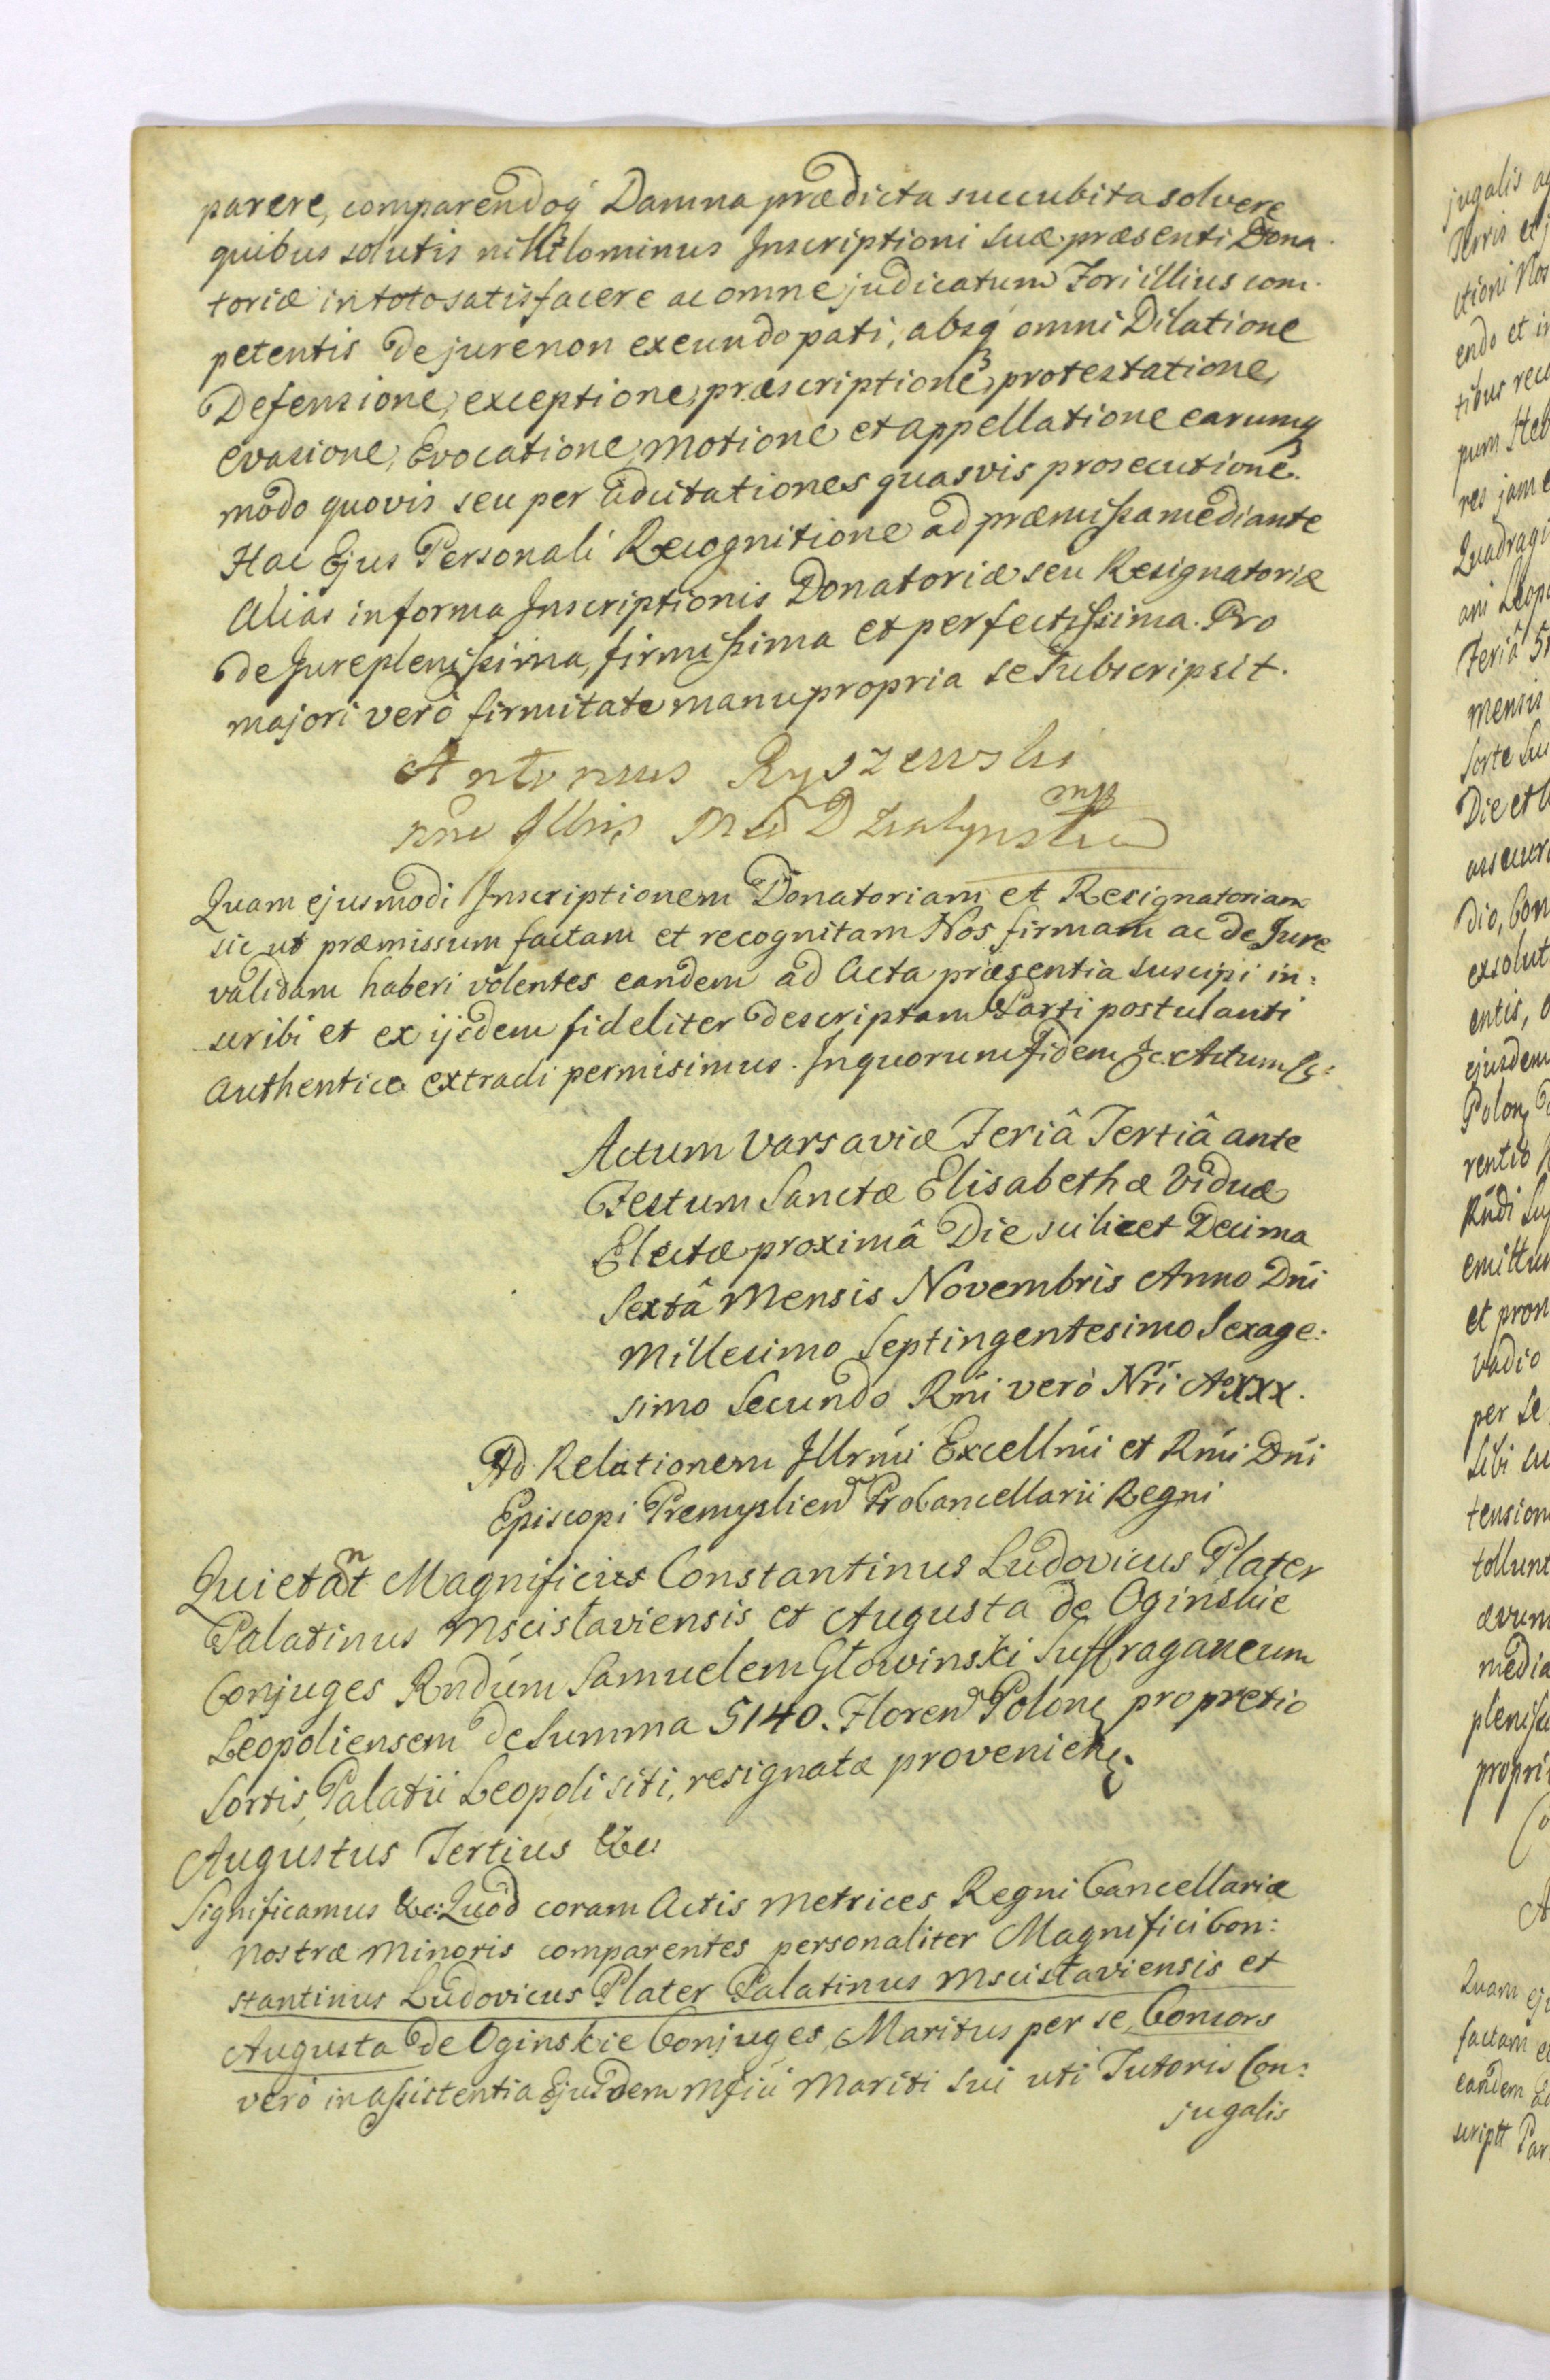 parere, comparendoq́ Damna prædicta succubita solvere
quibus solutis nihilominus Inscriptioni suæ præsenti Dona-
toriæ in toto satisfacere ac omne judicatum Fori illius com-
petentis de jure non exeundo pati, absq́ omni Dilatione
Defensione, exceptione, præscriptione, protestatione,
evasione, Evocatione, Motione et appellatione earumq
modo quovis seu per aditationes quasvis prosecutione.
Hac Ejus Personali Recognitione ad præmissa mediante
Alias in forma Inscriptionis Donatoriæ seu Resignatoriæ
de Jure plenissima, firmissima et perfectissima. Pro
majori verò firmitate manu propria se subscripsit.
Antonius Ryszewski
mp
Quam ejusmodi Inscriptionem Donatoriam et Resignatoriam
sic ut præmissum factam et recognitam Nos firmam ac de Jure
validam haberi volentes eandem ad Acta præsentia suscipi in:
scribi et ex ijsdem fideliter descriptam Parti postulanti
Authentice extradi permisimus. In quorum Fidem &c. Actum &c:
Actum Varsaviæ Feriâ Tertiâ ante
Festum Sanctæ Elisabethæ Viduæ
Electæ proximâ Die scilicet Decima
Sextâ Mensis Novembris Anno Dńi
Millesimo Septingentesimo Sexage-
simo Secundo Rńi verò Nŕi Aо XXX.
Ad Relationem Illrmi Excellmi et Rmi Dńi
Episcopi Premyslien Procancellarii Regni
Quietant Magnificus Constantinus Ludovicus Plater
Palatinus Mscislaviensis et Augusta de Oginskie
Conjuges Rndum Samuelem Głowinski Suffraganeum
Leopoliensem de Summa 5140. Floren Polon pro pretio
Sortis, Palatii Leopoli siti, resignatæ provenien
Augustus Tertius &c:
Significamus &c: Quod coram Actis Metrices Regni Cancellariæ
Nostræ Minoris comparentes personaliter Magnifici Con:
stantinus Ludovicus Plater Palatinus Mscislaviensis et
Augusta de Oginskie Conjuges, Maritus per se, Consors
verò in assistentia Ejusdem Mfici Mariti sui uti Tutoris Con:
jugalis